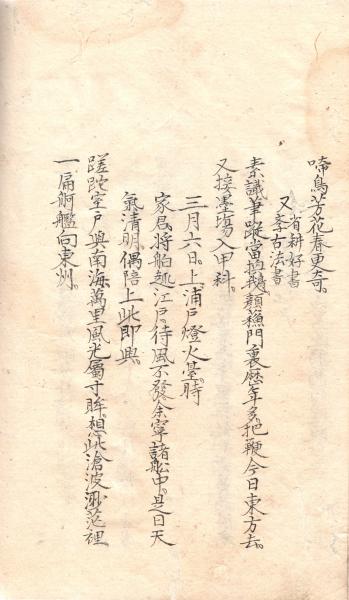 啼鳥芳花春更奇。
又省耕好書
又李古法書
素識筆蹤當換鵝。顏蘓門裏歷年多。把鞭今日東方去。
又接憑場入甲科。
三月六日。上浦戶燈火臺。時
家君將船趣江戶。待風不發。余寧諸舩中。是日天
氣清明。偶陪上此即興。
蹉跎室戶與南海。萬里風光屬寸眸。想此滄波渺茫裡
一扁舸艦向東州。